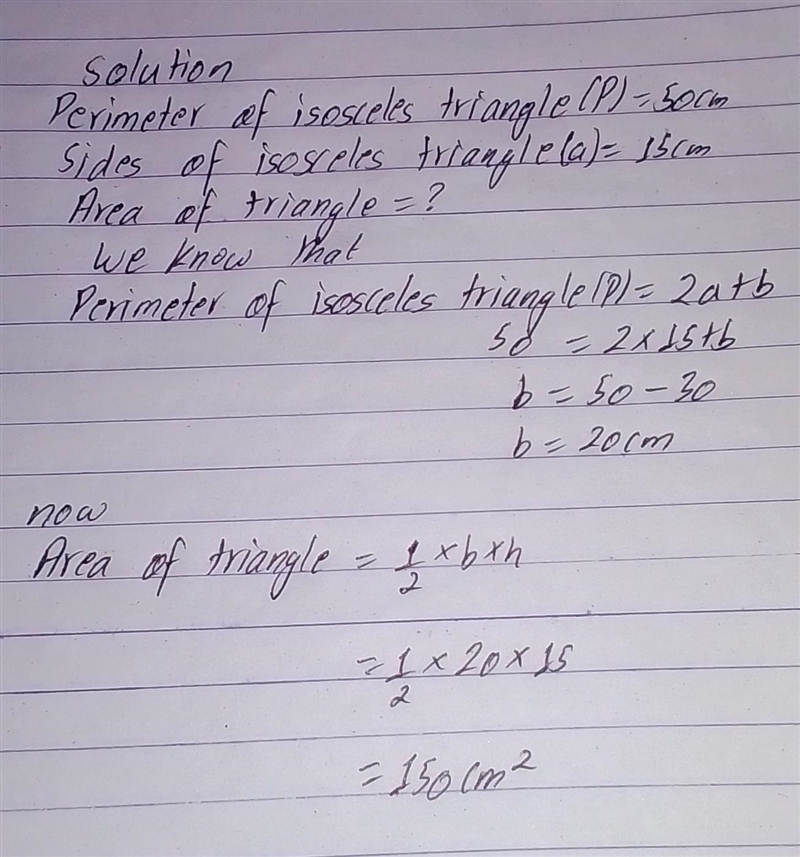 Solution
Perimeter of isosceles triangle(P)=50cm
Sides of isosceles triangle(a)=15cm
Area of triangle=?
We know that
Perimeter of isosceles triangle(P)=2a+b
50 = 2×15+b
b=50-30
b=20cm
now
Area of triangle = 1/2 ×b×h
= 1/2 × 20×15
= 150cm²